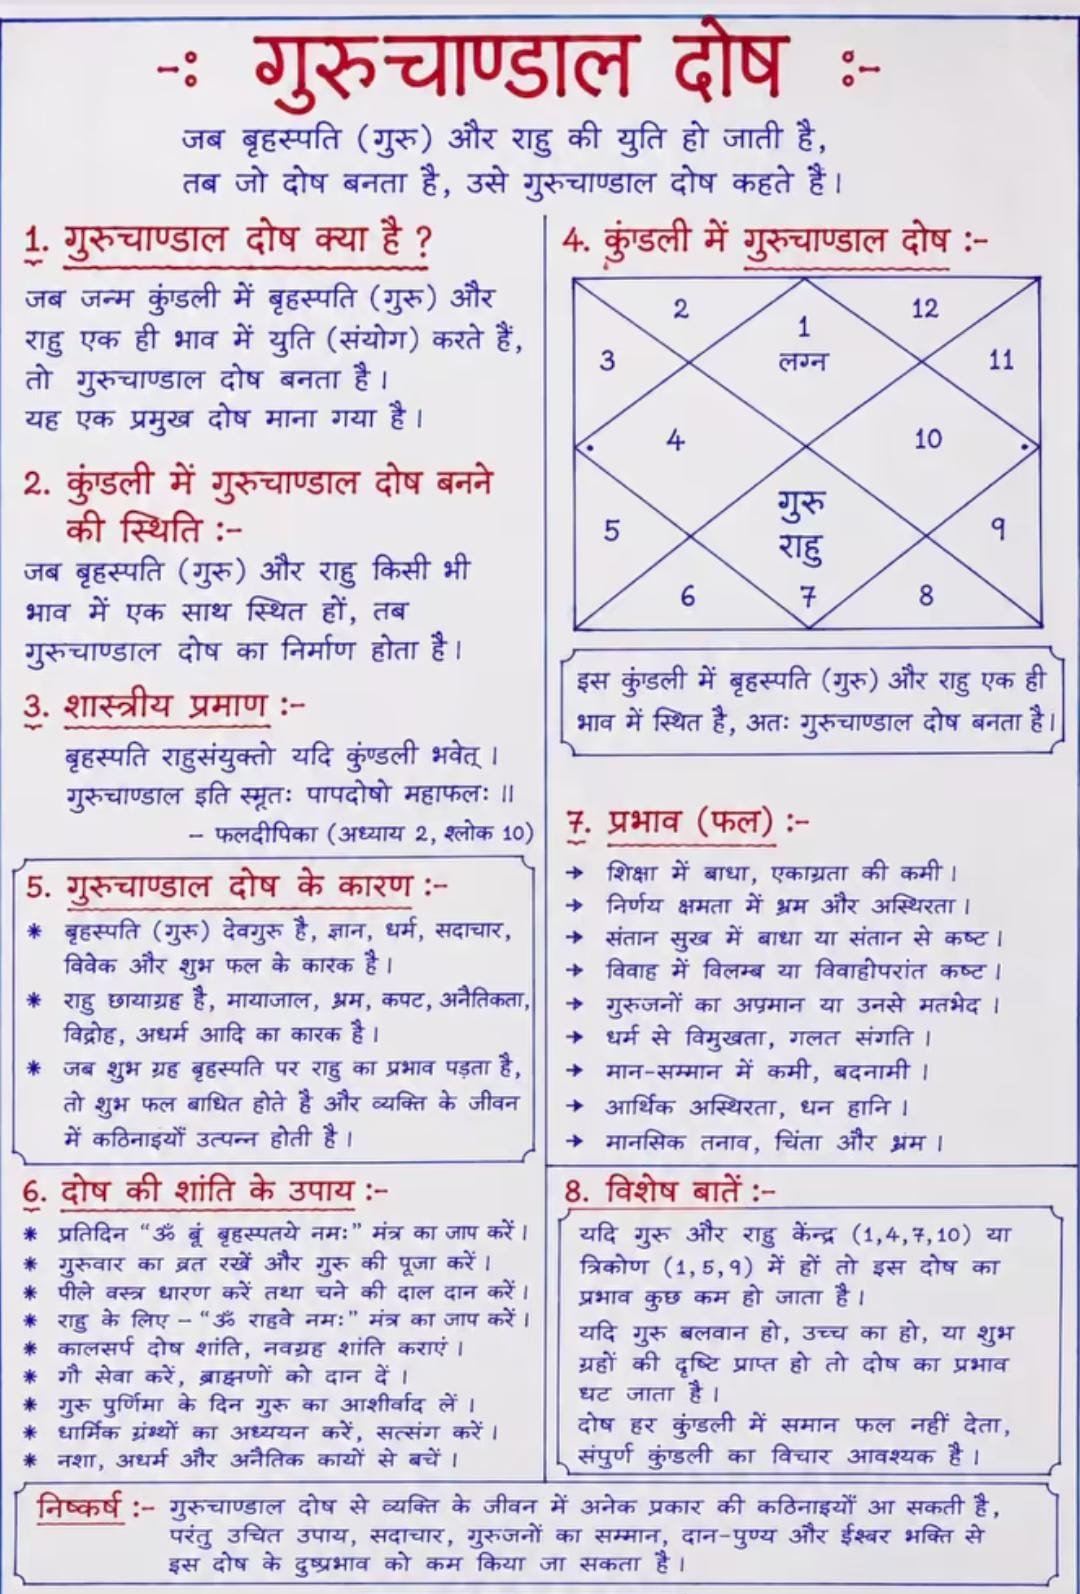 -: गुरुचाण्डाल दोष :-
जब बृहस्पति (गुरु) और राहु की युति हो जाती है,
तब जो दोष बनता है, उसे गुरुचाण्डाल दोष कहते हैं।
1. गुरुचाण्डाल दोष क्या है ?
जब जन्म कुंण्डली में बृहस्पति (गुरु) और
राहु एक ही भाव में युति (संयोग) करते हैं,
तो गुरुचाण्डाल दोष बनता है।
यह एक प्रमुख दोष माना गया है।
2. कुंण्डली में गुरुचाण्डाल दोष बनने
की स्थिति :-
जब बृहस्पति (गुरु) और राहु किसी भी
भाव में एक साथ स्थित हों, तब
गुरुचाण्डाल दोष का निर्माण होता है।
3. शास्त्रीय प्रमाण :-
बृहस्पति राहुसंयुक्तो यदि कुंण्डली भवेत्।
गुरुचाण्डाल इति स्मृतः पापदोषो महाफलः ॥
- फलदीपिका (अध्याय 2, श्लोक 10)
4. कुंण्डली में गुरुचाण्डाल दोष :-
2
1
12
3
लग्न
11
4
10
गुरु
5
राहु
9
6
7
8
इस कुंण्डली में बृहस्पति (गुरु) और राहु एक ही
भाव में स्थित है, अतः गुरुचाण्डाल दोष बनता है।
5. गुरुचाण्डाल दोष के कारण :-
* बृहस्पति (गुरु) देवगुरु है, ज्ञान, धर्म, सदाचार,
विवेक और शुभ फल के कारक है।
* राहु छायाग्रह है, मायाजाल, भ्रम, कपट, अनैतिकता,
विद्रोह, अधर्म आदि का कारक है।
* जब शुभ ग्रह बृहस्पति पर राहु का प्रभाव पड़ता है,
तो शुभ फल बाधित होते है और व्यक्ति के जीवन
में कठिनाइयाँ उत्पन्न होती है।
7. प्रभाव (फल) :-
→ शिक्षा में बाधा, एकाग्रता की कमी।
→ निर्णय क्षमता में भ्रम और अस्थिरता।
→ संतान सुख में बाधा या संतान से कष्ट।
→ विवाह में विलम्ब या विवाहोपरांत कष्ट।
→ गुरुजनों का अपमान या उनसे मतभेद।
→ धर्म से विमुखता, गलत संगति।
→ मान-सम्मान में कमी, बदनामी।
→ आर्थिक अस्थिरता, धन हानि।
→ मानसिक तनाव, चिंता और भ्रम।
6. दोष की शांति के उपाय :-
* प्रतिदिन “ॐ बृं बृहस्पतये नमः” मंत्र का जाप करें।
* गुरुवार का व्रत रखें और गुरु की पूजा करें।
* पीले वस्त्र धारण करें तथा चने की दाल दान करें।
* राहु के लिए – “ॐ राहवे नमः” मंत्र का जाप करें।
* कालसर्प दोष शांति, नवग्रह शांति कराएं।
* गौ सेवा करें, ब्राह्मणों को दान दें।
* गुरु पुर्णिमा के दिन गुरु का आशीर्वाद लें।
* धार्मिक ग्रंथों का अध्ययन करें, सत्संग करें।
* नशा, अधर्म और अनैतिक कार्यो से बचें।
8. विशेष बातें :-
यदि गुरु और राहु केंन्द्र (1,4,7,10) या
त्रिकोण (1,5,9) में हों तो इस दोष का
प्रभाव कुछ कम हो जाता है।
यदि गुरु बलवान हो, उच्च का हो, या शुभ
ग्रहों की दृष्टि प्राप्त हो तो दोष का प्रभाव
घट जाता है।
दोष हर कुंण्डली में समान फल नहीं देता,
संपुर्ण कुंण्डली का विचार आवश्यक है।
निष्कर्ष :- गुरुचाण्डाल दोष से व्यक्ति के जीवन में अनेक प्रकार की कठिनाइयाँ आ सकती है,
परंतु उचित उपाय, सदाचार, गुरुजनों का सम्मान, दान-पुण्य और ईश्वर भक्ति से
इस दोष के दुष्प्रभाव को कम किया जा सकता है।